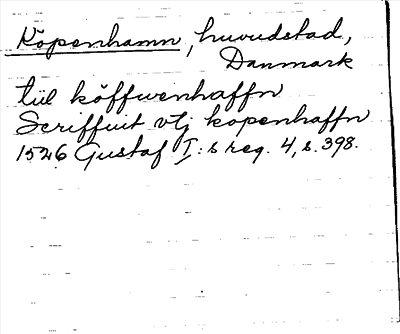 Köpenhamn, huvudstad,
Danmark
till köffwenhaffn
Scriffuit vtj kopenhaffn
1526 Gustaf I:s reg. 4, s. 398.